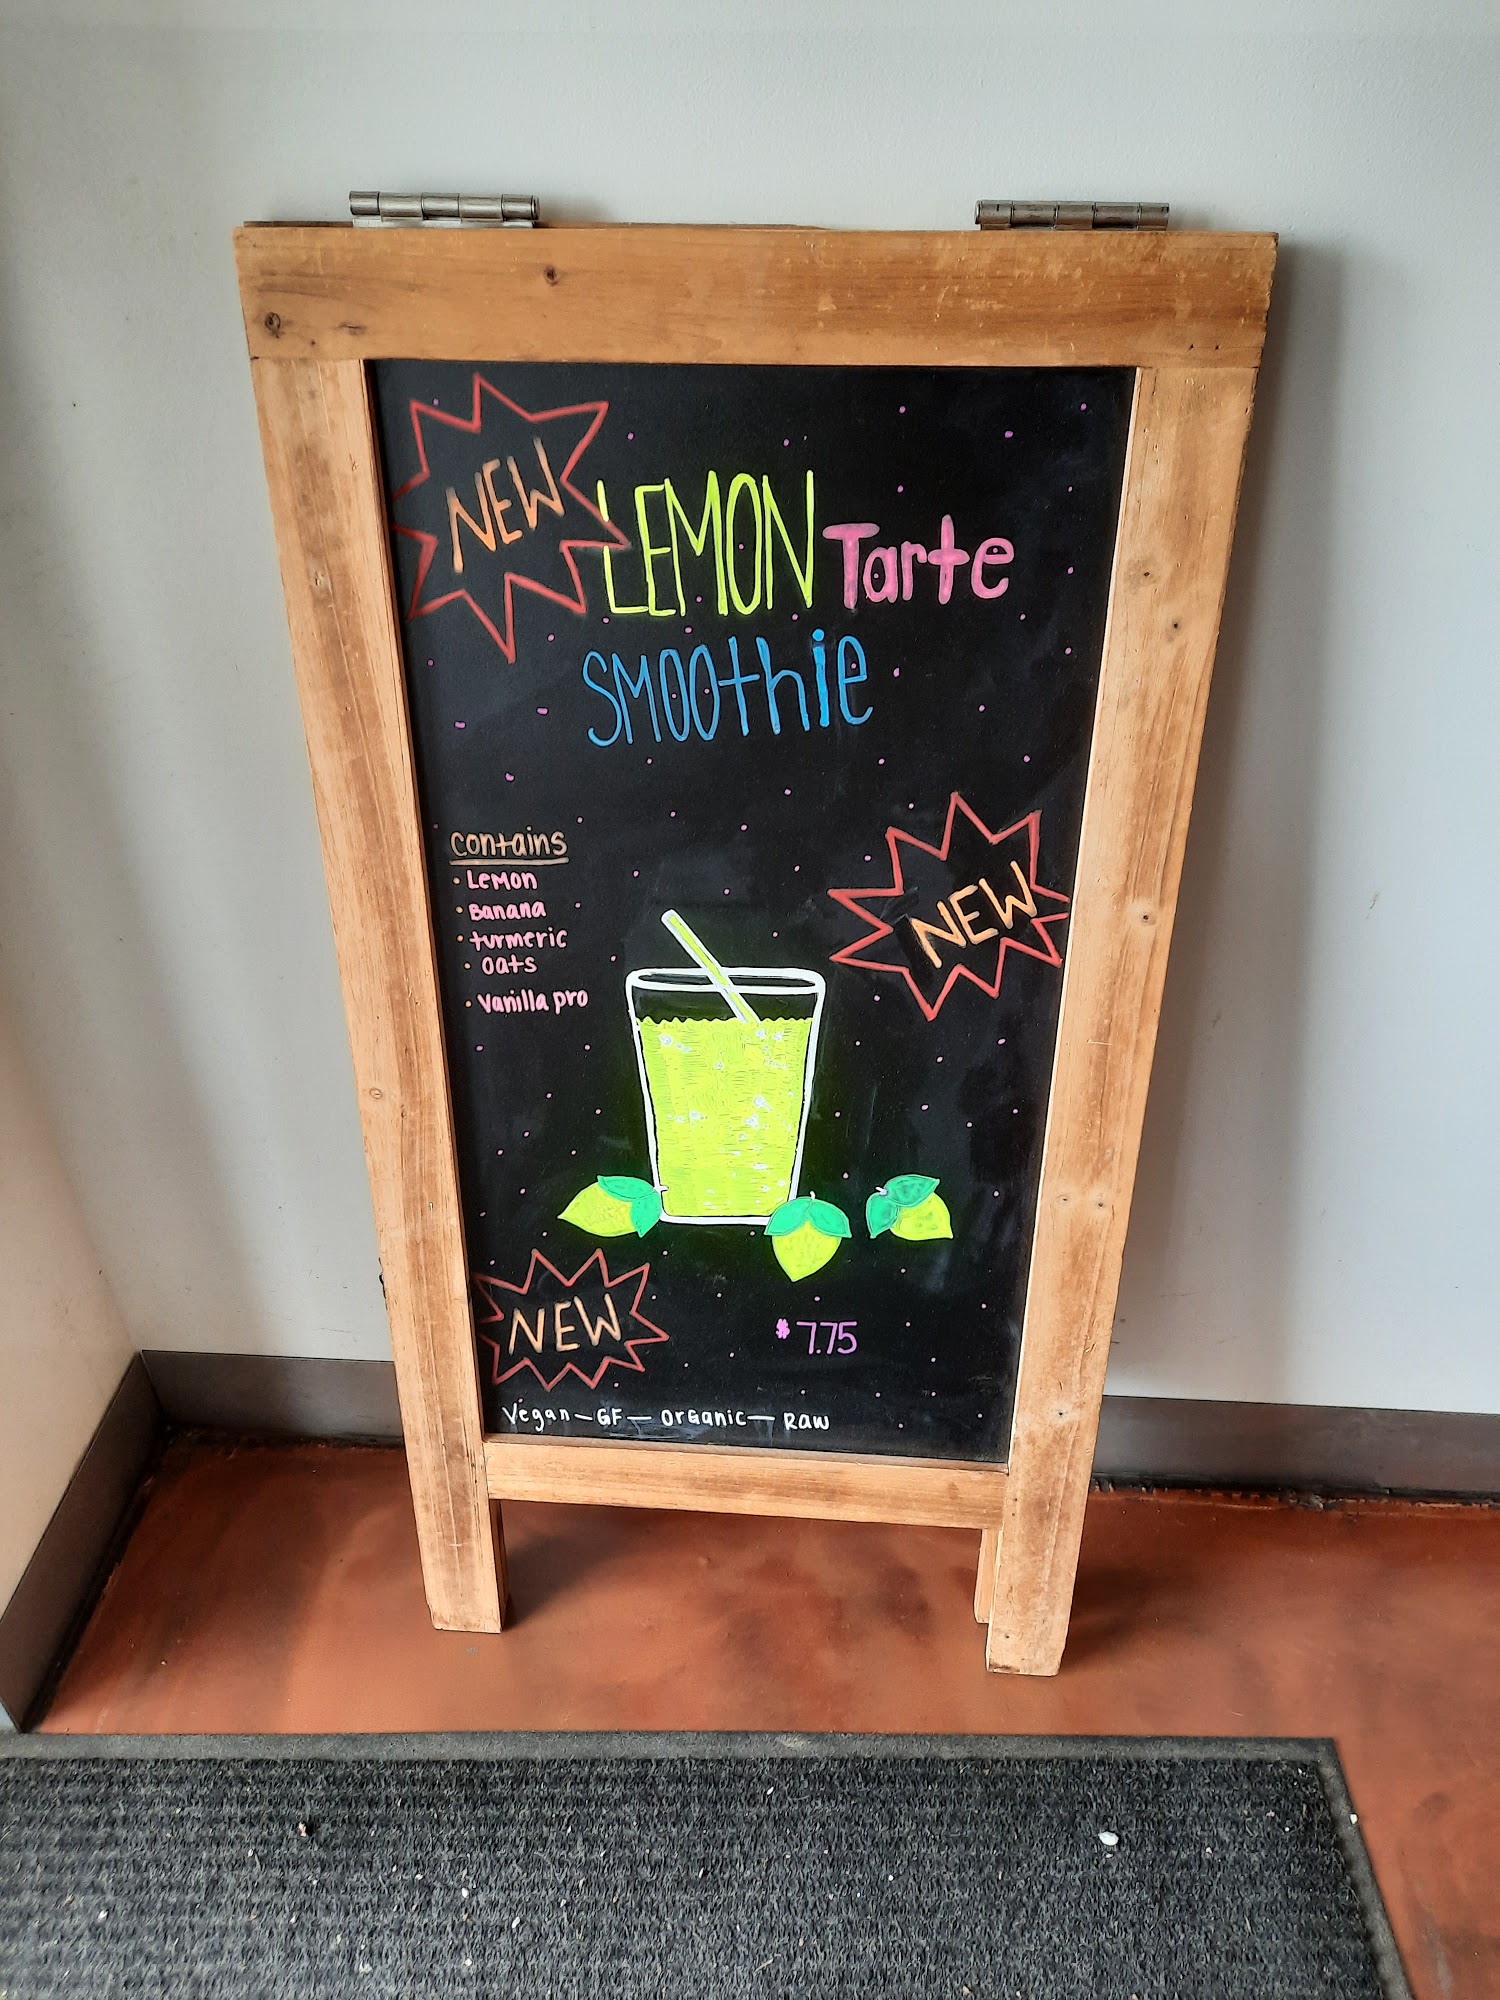 NEW
LEMON Tarte
SMOOthiE
NEW
contains
• Lemon
• Banana
• turmeric
• oats
• Vanilla pro
NEW
$7.75
Vegan - GF - OrGanic - Raw